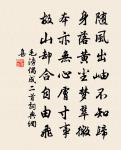 随風出岫不知歸
身落黄塵夢翠微
本亦無心膚寸事
故山却合自由飛
毛滂偶成二首詞典網
集